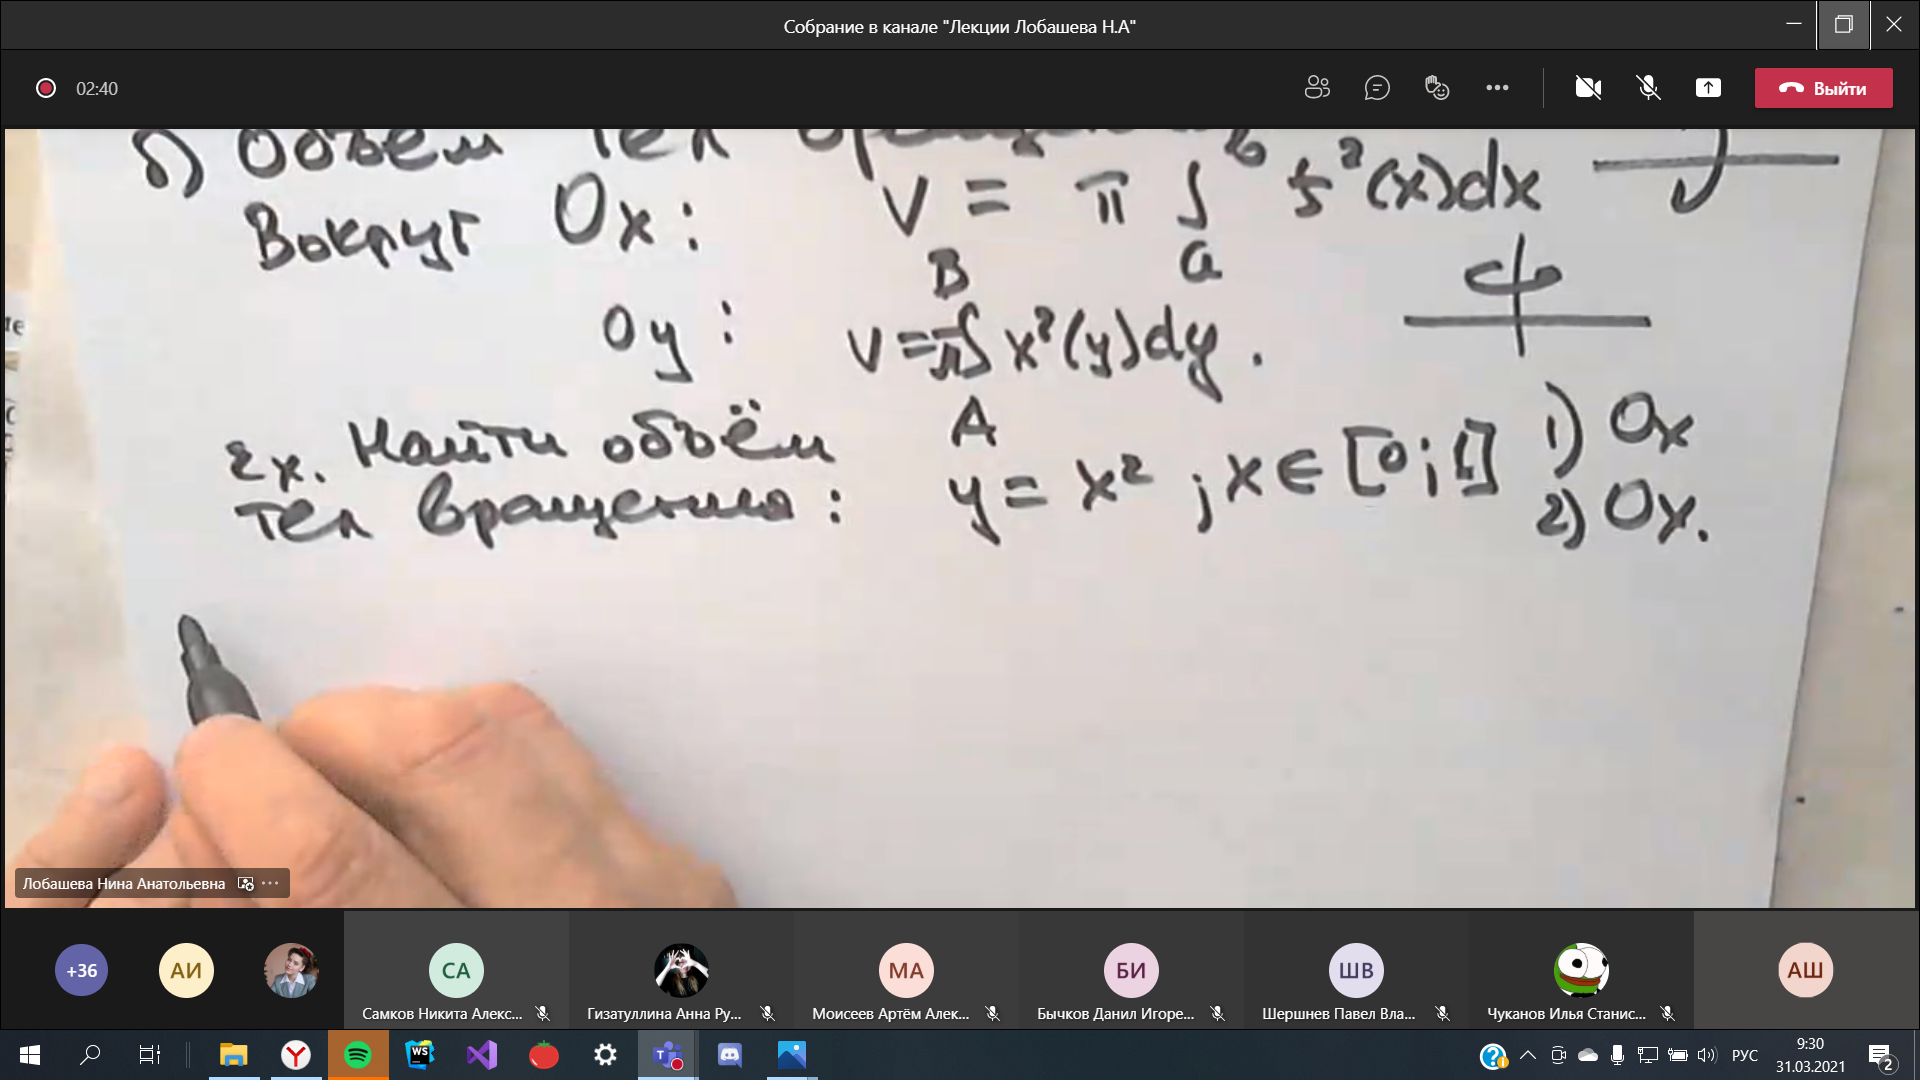 Собрание в канале "Лекции Лобашева Н.А"
02:40
Выйти
б) Объём тел вращения
Вокруг Ox: V = π ∫ₐᵇ f²(x)dx
Oy: V = π ∫ x²(y)dy.
B
A
Ex. Найти объём
тел вращения: y = x² ; x ∈ [0;1] 1) Ox
2) Oy.
Лобашева Нина Анатольевна
+36
АИ
СА
МА
БИ
ШВ
АШ
Самков Никита Алекс...
Гизатуллина Анна Ру...
Моисеев Артём Алек...
Бычков Данил Игоре...
Шершнев Павел Вла...
Чуканов Илья Станис...
WS
РУС
9:30
31.03.2021
2